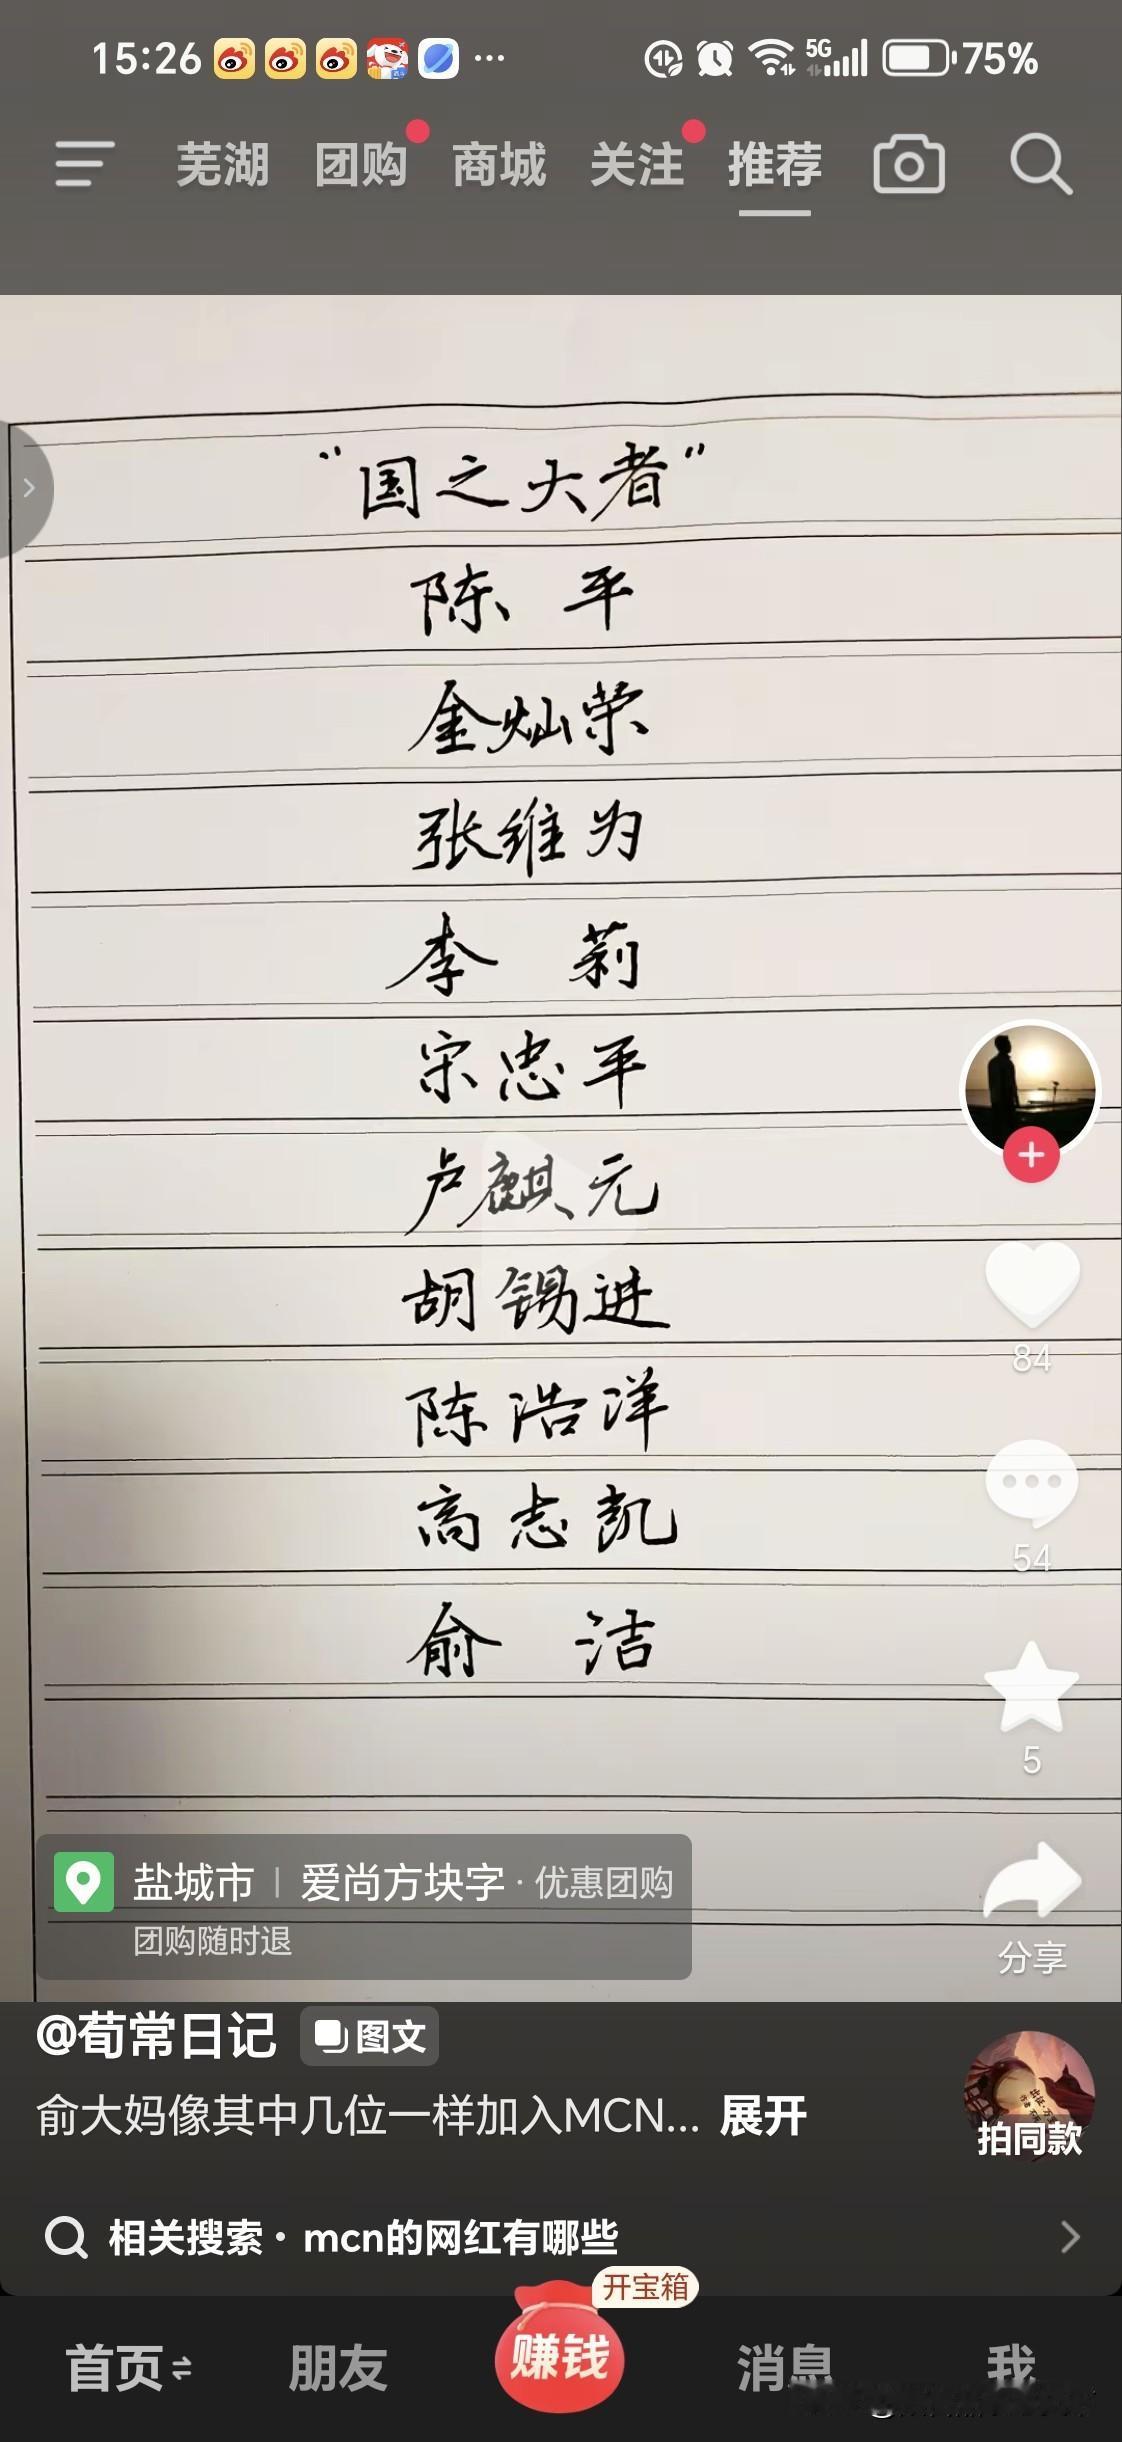 15:26 ··· 5G 75%
芜湖 团购 商城 关注 推荐
“国之大者”
陈平
金灿荣
张维为
李莉
宋忠平
卢麒元
胡锡进
陈浩洋
高志凯
俞洁
84
54
5
分享
盐城市 | 爱尚方块字 · 优惠团购
团购随时退
@荀常日记 图文
俞大妈像其中几位一样加入MCN... 展开
拍同款
相关搜索 · mcn的网红有哪些
开宝箱
首页 朋友 赚钱 消息 我